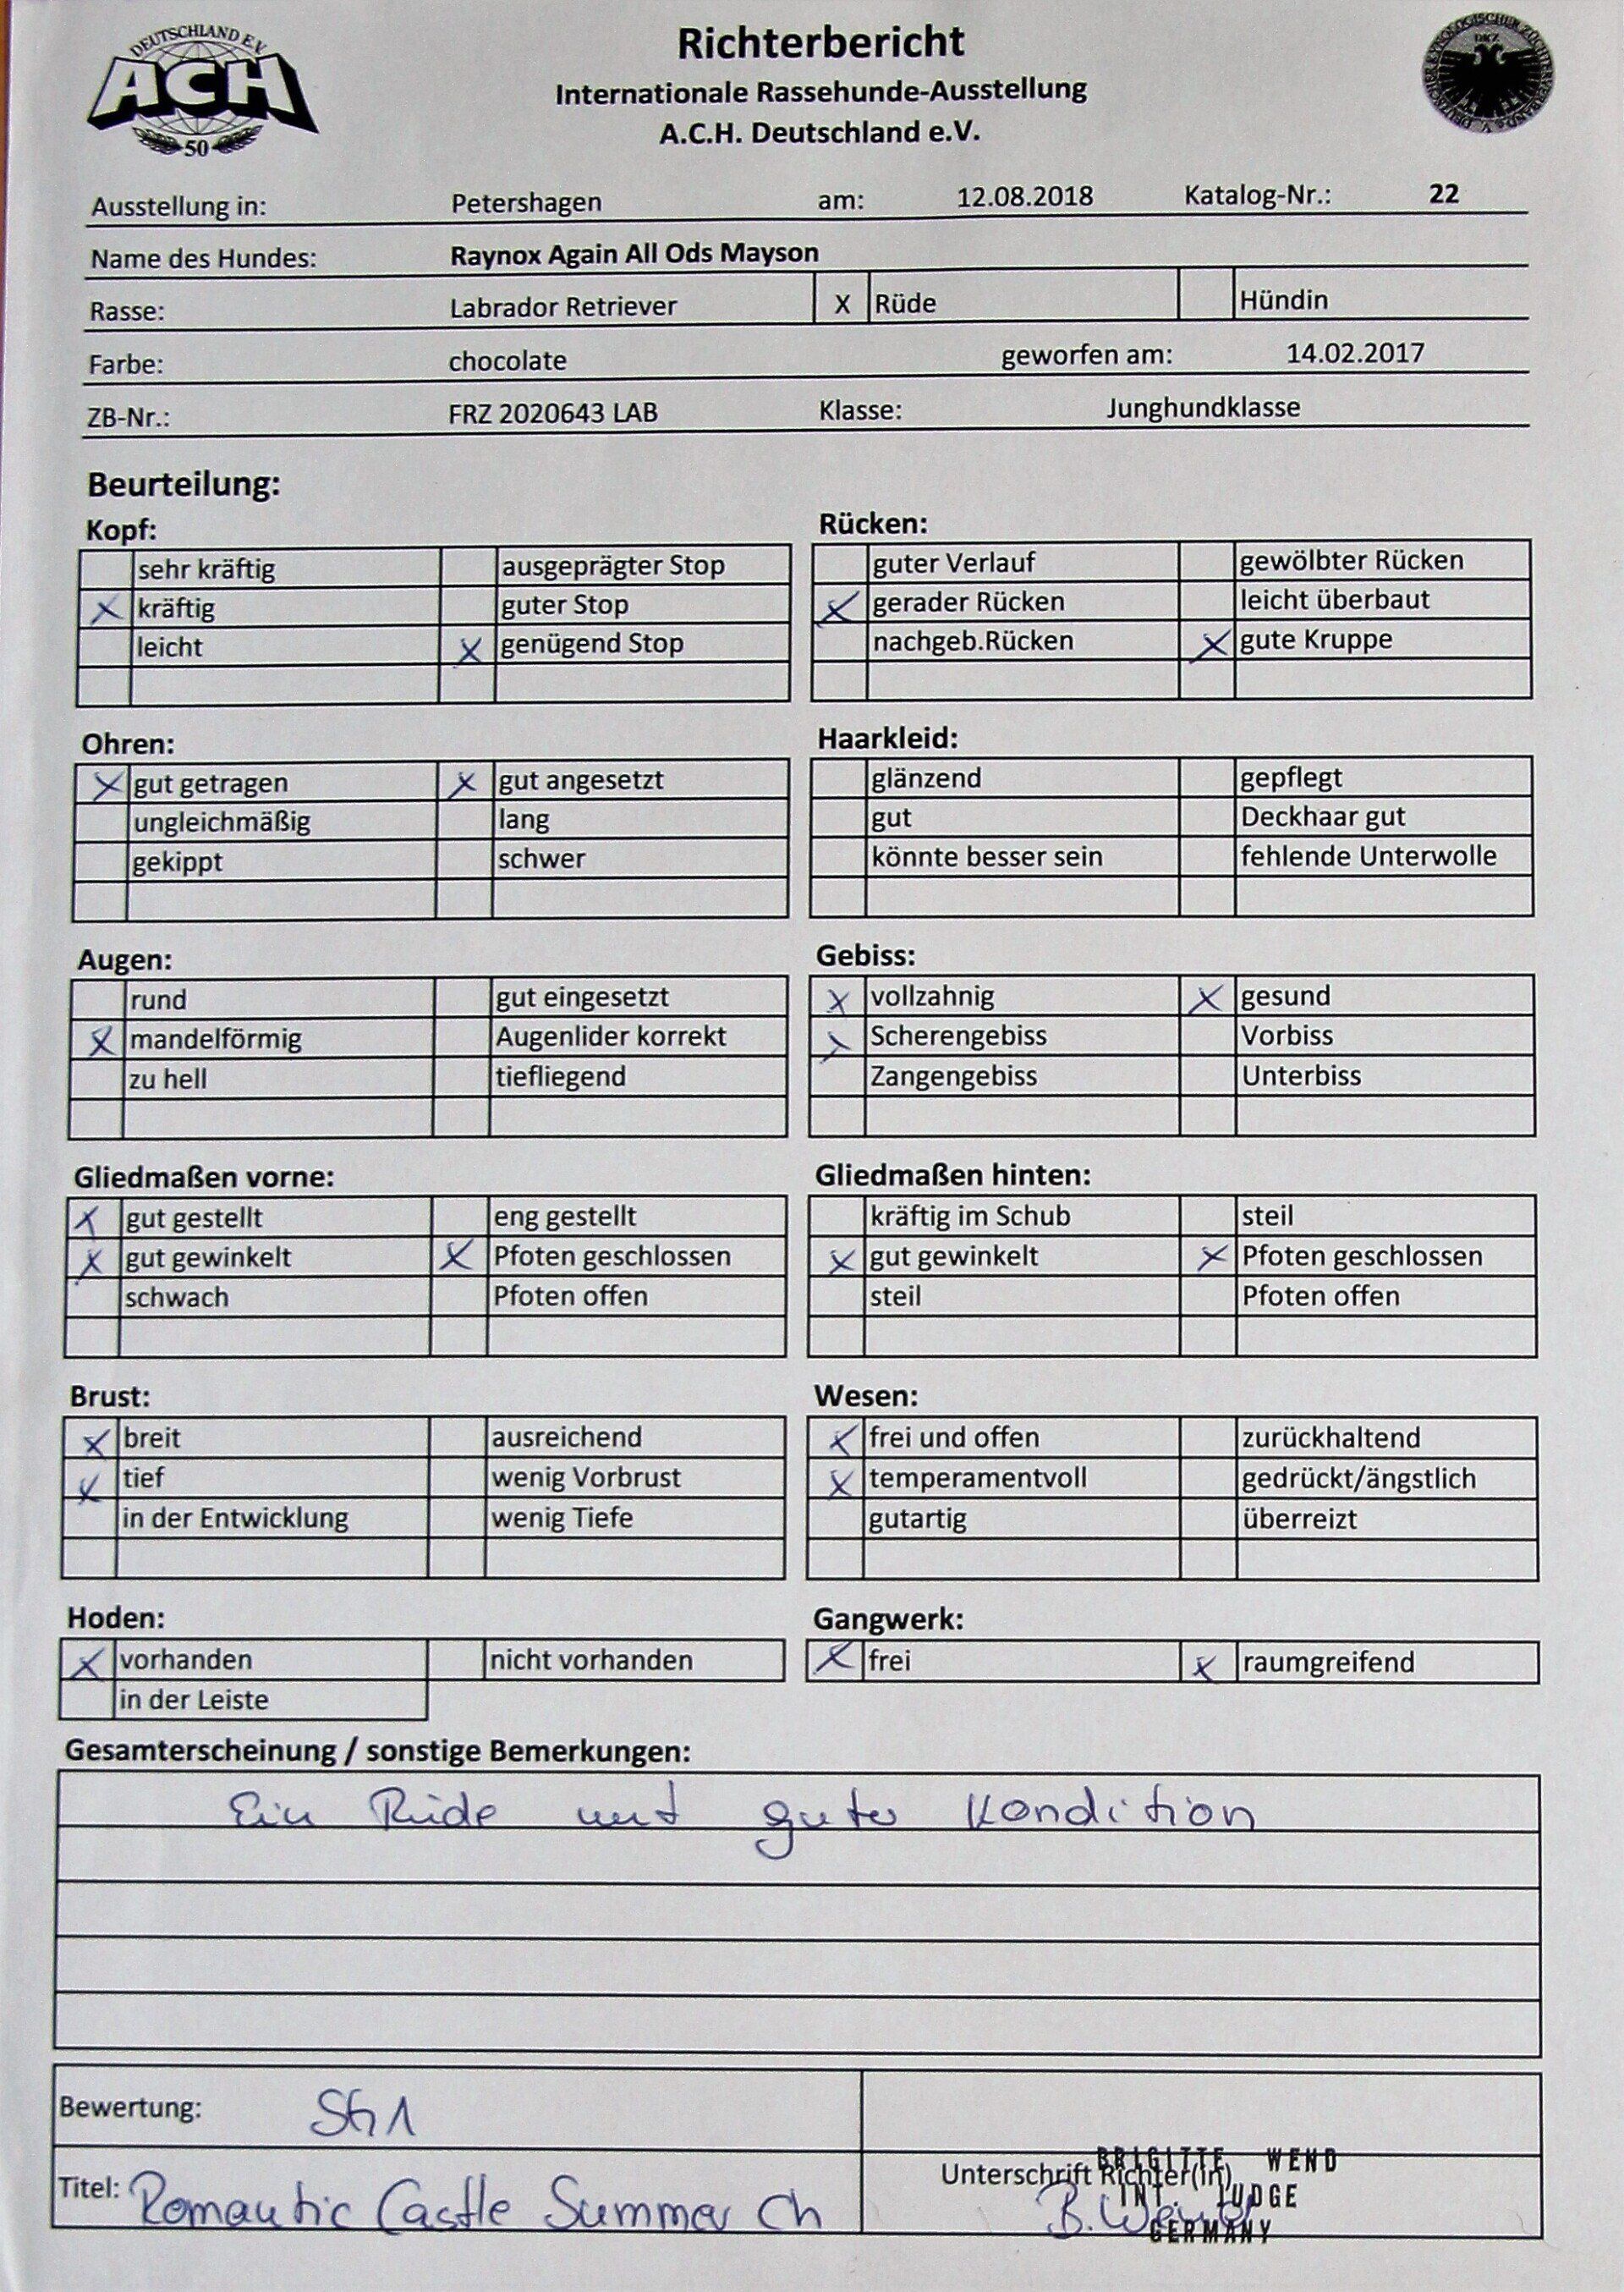 DEUTSCHLAND E.V.
ACH
50
Richterbericht
Internationale Rassehunde-Ausstellung
A.C.H. Deutschland e.V.
DKZ
Ausstellung in: Petershagen am: 12.08.2018 Katalog-Nr.: 22
Name des Hundes: Raynox Again All Ods Mayson
Rasse: Labrador Retriever X Rüde Hündin
Farbe: chocolate geworfen am: 14.02.2017
ZB-Nr.: FRZ 2020643 LAB Klasse: Junghundklasse
Beurteilung:
Kopf:
sehr kräftig ausgeprägter Stop
X kräftig guter Stop
leicht X genügend Stop
Rücken:
guter Verlauf gewölbter Rücken
X gerader Rücken leicht überbaut
nachgeb.Rücken X gute Kruppe
Ohren:
X gut getragen X gut angesetzt
ungleichmäßig lang
gekippt schwer
Haarkleid:
glänzend gepflegt
gut Deckhaar gut
könnte besser sein fehlende Unterwolle
Augen:
rund gut eingesetzt
X mandelförmig Augenlider korrekt
zu hell tiefliegend
Gebiss:
X vollzahnig X gesund
X Scherengebiss Vorbiss
Zangengebiss Unterbiss
Gliedmaßen vorne:
X gut gestellt eng gestellt
X gut gewinkelt X Pfoten geschlossen
schwach Pfoten offen
Gliedmaßen hinten:
kräftig im Schub steil
X gut gewinkelt X Pfoten geschlossen
steil Pfoten offen
Brust:
X breit ausreichend
X tief wenig Vorbrust
in der Entwicklung wenig Tiefe
Wesen:
X frei und offen zurückhaltend
X temperamentvoll gedrückt/ängstlich
gutartig überreizt
Hoden:
X vorhanden nicht vorhanden
in der Leiste
Gangwerk:
X frei X raumgreifend
Gesamterscheinung / sonstige Bemerkungen:
Ein Rüde mit guter Kondition
Bewertung: SG1
Titel: Romantic Castle Summer Ch
Unterschrift Richter(in)
B. Wend
BRIGITTE WEND
INT. JUDGE
GERMANY